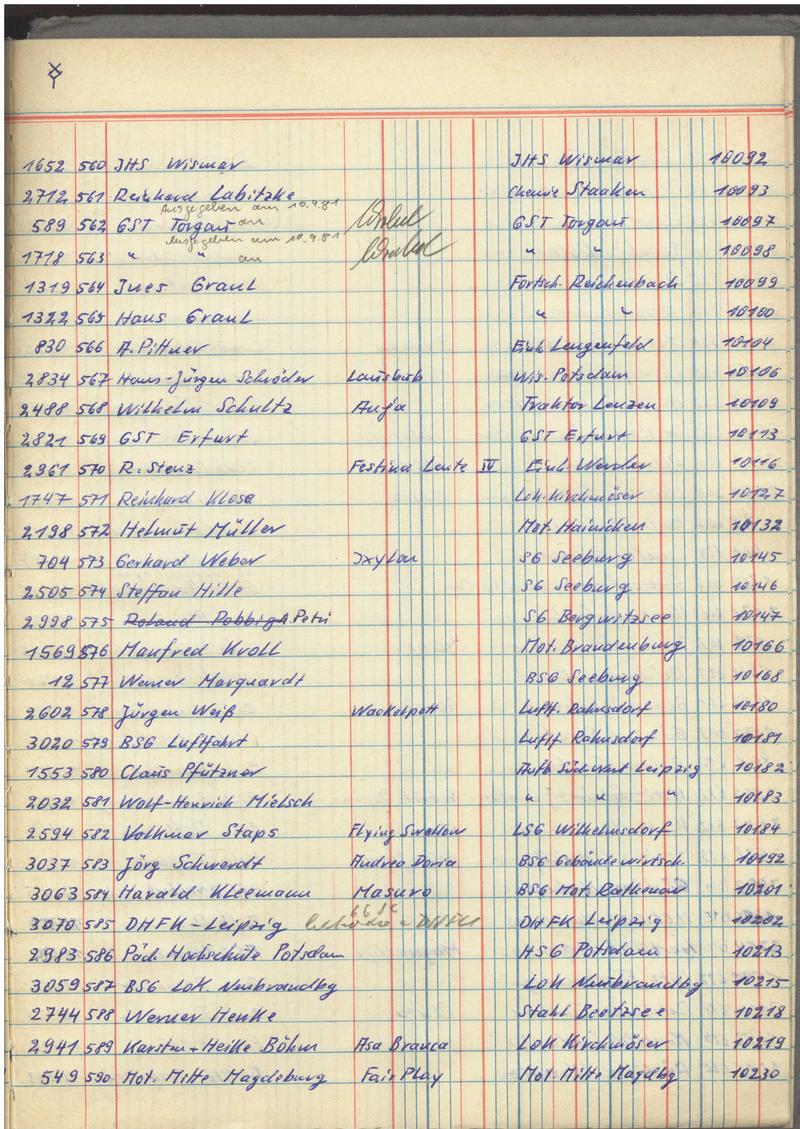 1652 560 IHS Wismar IHS Wismar 10092
2712 561 Reinhard Labitzke Chemie Staaken 10093
Ausgegeben am 10.9.81
589 562 GST Torgau an GST Torgau 10097
Ausgegeben am 10.9.81
1718 563 " " an " " 10098
1319 564 Ines Graul Fortsch. Reichenbach 10099
1322 565 Hans Graul " " 10100
830 566 A. Pittner Einh. Lengenfeld 10104
2834 567 Hans-Jürgen Schröder Lausbub Wis. Potsdam 10106
2488 568 Wilhelm Schultz Anja Traktor Lenzen 10109
2821 569 GST Erfurt GST Erfurt 10113
2961 570 R. Stenz Festina Lente IV Einh. Werder 10116
1747 571 Reinhard Klose Lok. Kirchmöser 10127
2198 572 Helmut Müller Mot. Hainichen 10132
704 573 Gerhard Weber Ixylon SG Seeburg 10145
2505 574 Steffan Hille SG Seeburg 10146
2998 575 Roland Pobbig A. Petri SG Bergwitzsee 10147
1569 576 Manfred Kroll Mot. Brandenburg 10166
12 577 Werner Marquardt BSG Seeburg 10168
2602 578 Jürgen Weiß Wackelpott Luftf. Rahnsdorf 10180
3020 579 BSG Luftfahrt Luftf. Rahnsdorf 10181
1553 580 Claus Pfützner Aufb. Süd-West Leipzig 10182
2032 581 Wolf-Henrich Mielsch " " " 10183
2594 582 Volkmar Staps Flying Swallow LSG Wilhelmsdorf 10184
3037 583 Jörg Schwerdt Andrea Doria BSG Gebäudewirtsch. 10192
3063 584 Harald Kleemann Masuro BSG Mot. Rathenow 10201
3070 585 DHFK-Leipzig DHFK DHFK Leipzig 10202
2983 586 Päd. Hochschule Potsdam HSG Potsdam 10213
3059 587 BSG LOK Neubrandbg LOK Neubrandbg 10215
2744 588 Werner Henke Stahl Beetzsee 10218
2941 589 Karsten + Heike Böhm Asa Branca LOK Kirchmöser 10219
549 590 Mot. Mitte Magdeburg Fair Play Mot. Mitte Magdbg 10230